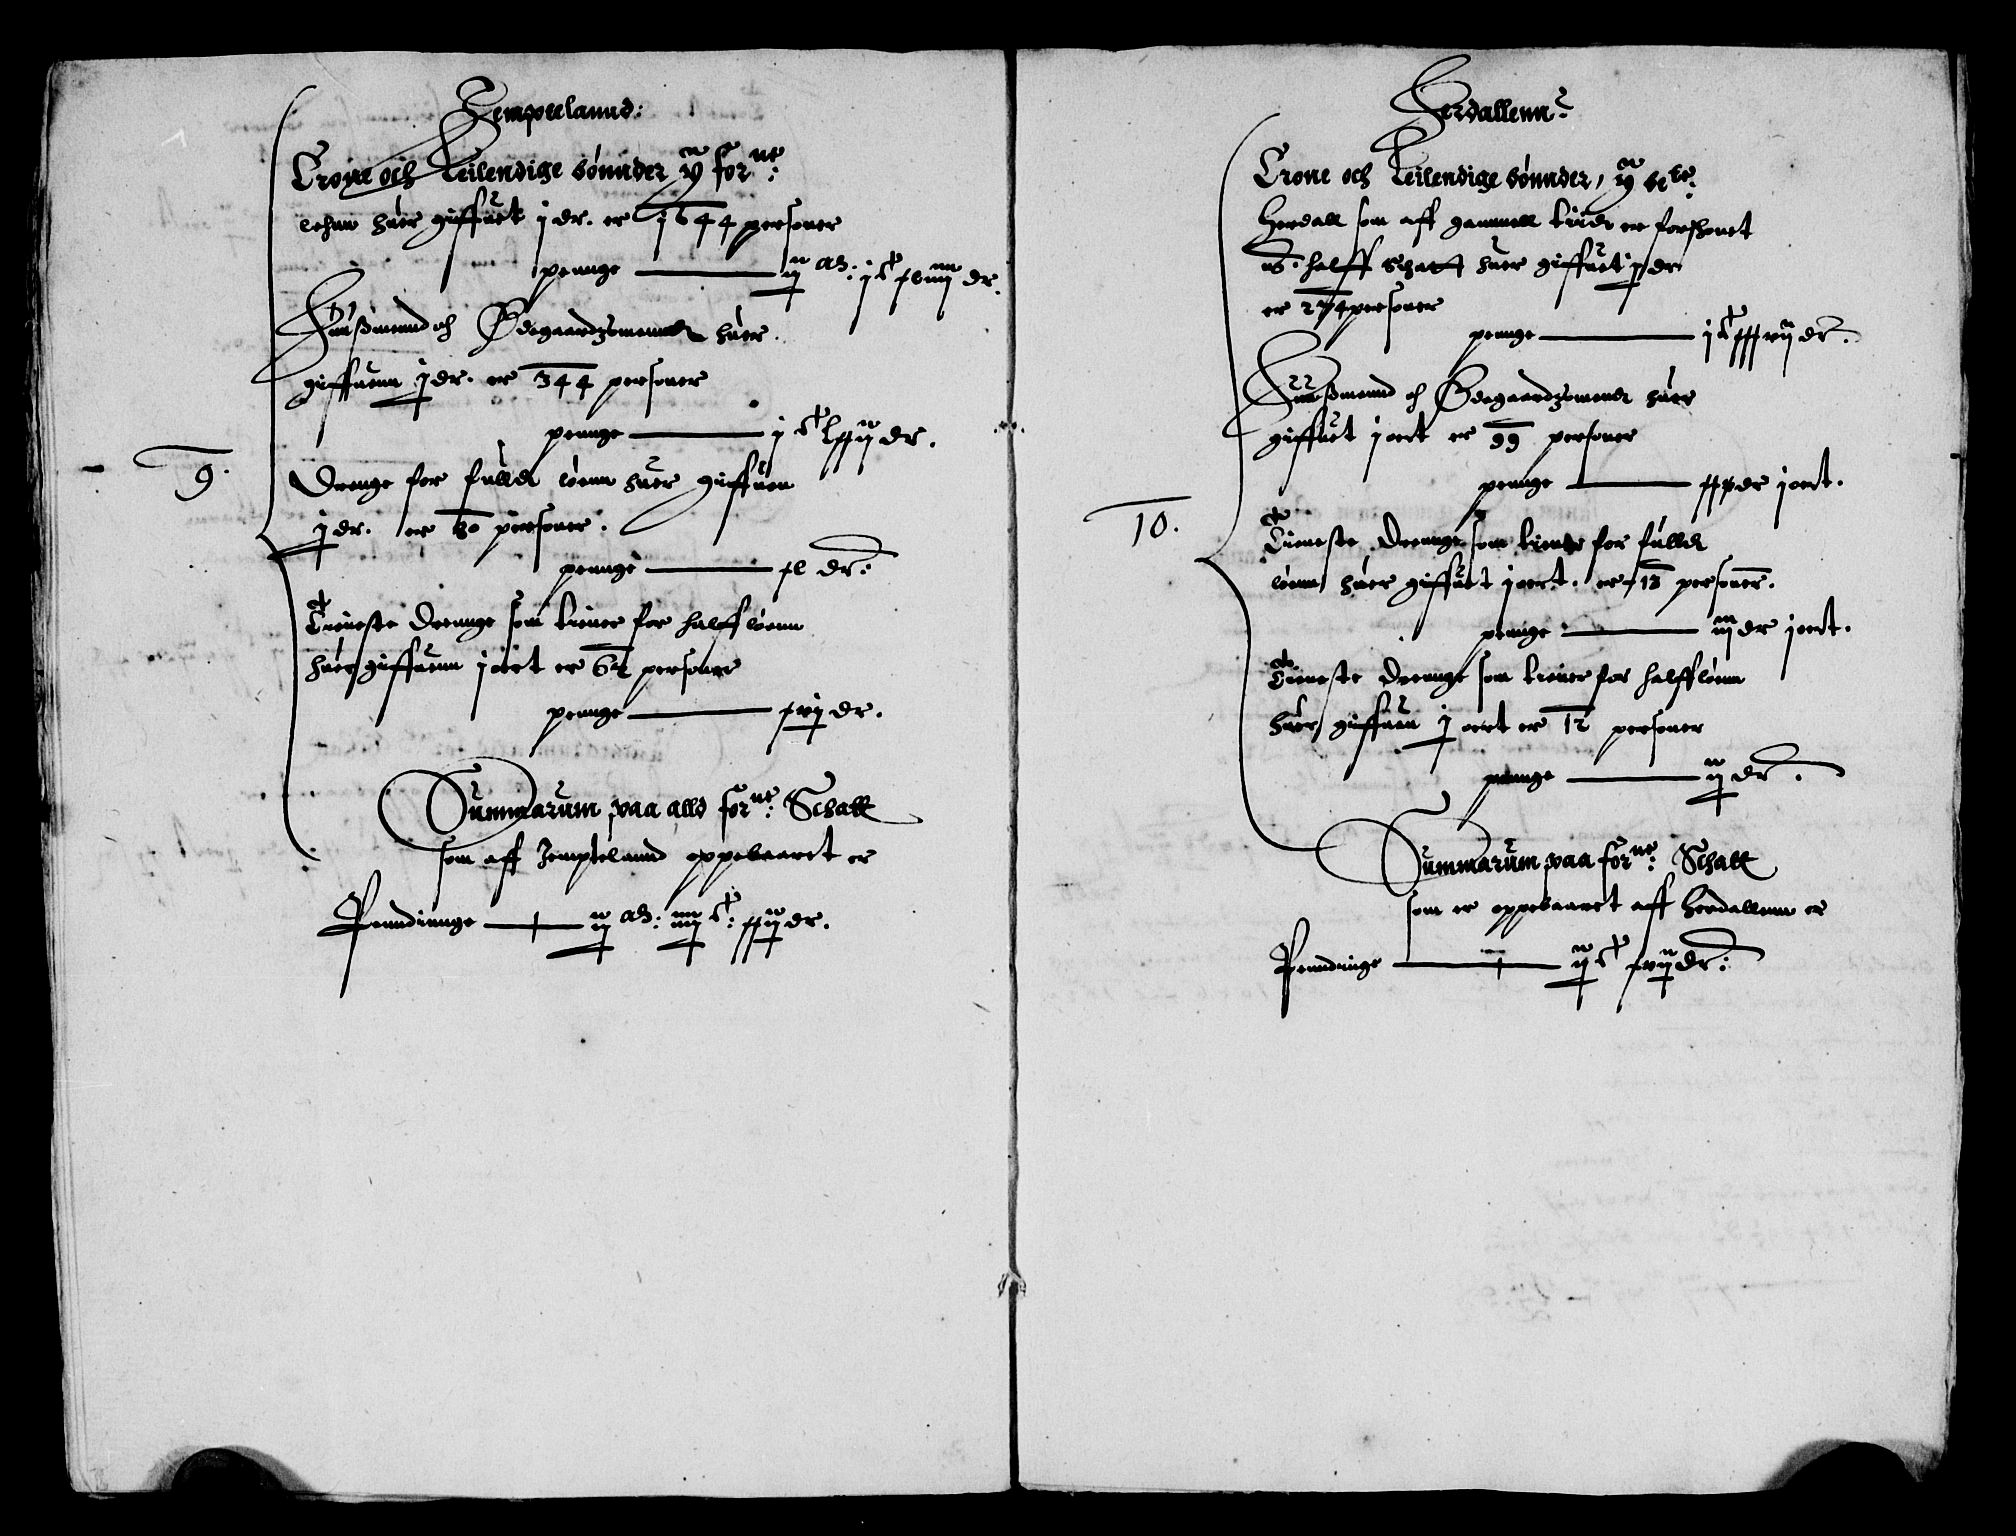 Jempteelannd:
Crone och Leilendige bønnder ÿ forne:
Lehnn huer giffuet j dr. er 1644 personer
pennge — ij M: j C xliiij dr.
Huußmennd och Ødegaardzmennd huer.
giffuenn j dr. er 344 personer
pennge — j C lxxij dr.
9.
Drenge for fulld løenn huer giffuen
j dr. er 80 personer.
pennge — xl dr:
Tieneste Drennge som tiener for halff løenn
huer giffuenn j ortt er 62 personer
pennge — xvj dr.
Summarum paa alld forne: Schatt
som aff Jempteland oppebaaret er
Penndinnge — ij M: iiij C: xxij dr.
Herdallenn
Crone och Leilendige bønnder, ÿ
Herdall som aff gammell tiid er forschonet
halff Schatt huer giffuet j dr
er 274 personer
pennge — j C xxxvij dr.
Huußmennd och Ødegaardzmend huer
giffuet j ortt er 99 personer
pennge — dr j ortt.
10.
Tieneste Drennge som tiener for fulld
løenn huer giffuet j ortt. er 13 personer.
pennge — iij dr j ortt.
Tieneste Drennge som tiener for halff løenn
huer giffuen j ortt er 12 personer
pennge — ij dr.
Summarum paa forne: Schatt
som er oppebaaret aff Herdallenn er
Penndinge — ij C xvij dr: